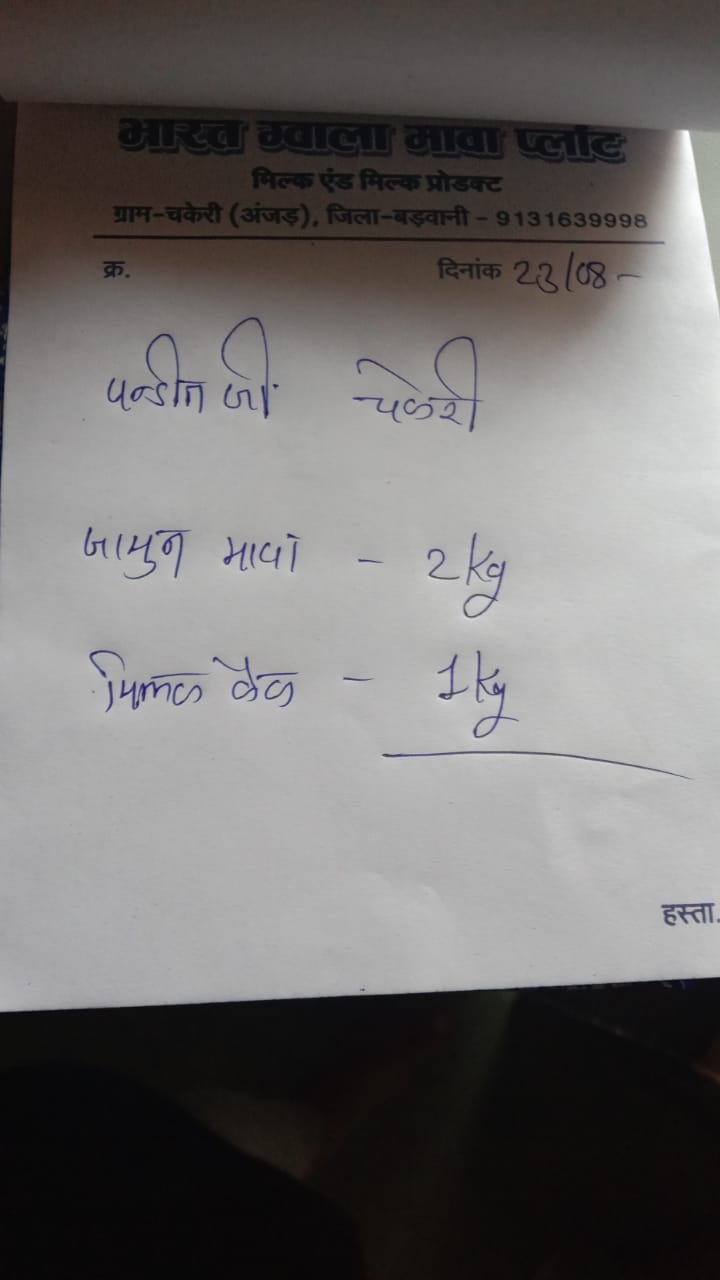 भारत ग्वाला मावा प्लांट
मिल्क एंड मिल्क प्रोडक्ट
ग्राम-चकेरी (अंजड़), जिला-बड़वानी - 9131639998
क्र. दिनांक 23/08 -
पन्डीत जी चकेरी
जामुन मावा - 2 kg
मिल्क कैक - 1 kg
हस्ता.